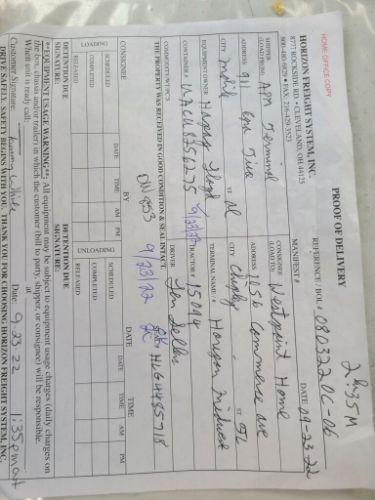 HOME OFFICE COPY
2 4:35 M
PROOF OF DELIVERY
HORIZON FREIGHT SYSTEM, INC.
8777 ROCKSIDE RD. • CLEVELAND, OH 44125
800-480-6829 • FAX: 216-429-3523
REFERENCE / BOL # 0803220C-06
MANIFEST # DATE 09-23-22
SHIPPER (LOAD FROM) APM Terminal
CONSIGNEE (LOAD TO) Westpoint Home
ADDRESS 911
ADDRESS Commerce ave
CITY Mobile ST al
CITY Chipley ST FL
EQUIPMENT OWNER Hapag Lloyd
TERMINAL NAME / # Horizon Midwest
CONTAINER # UACU8356275 9/23/22 TRACTOR # 15194
COMMODITY/WT/PCS
DRIVER
SEAL # HLG4485718
THE PROPERTY WAS RECEIVED IN GOOD CONDITION & SEAL INTACT.
9/23/22
CONSIGNEE: BY DATE TIME
LOADING DATE TIME AM PM
SCHEDULED
COMPLETED
RELEASED
UNLOADING DATE TIME AM PM
SCHEDULED
COMPLETED
RELEASED
DETENTION DUE
SIGNATURE:
DETENTION DUE
SIGNATURE:
**EQUIPMENT USAGE WARNING**: All equipment may be subject to equipment usage charges (daily charges on
the box, chassis and/or trailer) in which the customer (bill to party, shipper, or consignee) will be responsible.
When unit is ready call: at
Customer Signature: White Date: 9.23.22 1:35pm out
DRIVE SAFELY, SAFETY BEGINS WITH YOU. THANK YOU FOR CHOOSING HORIZON FREIGHT SYSTEM, INC.